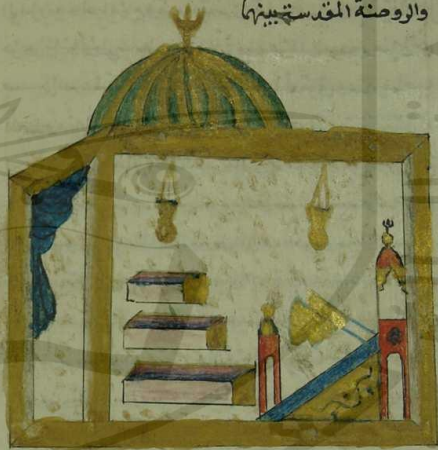 والروضة المقدسة بينهما